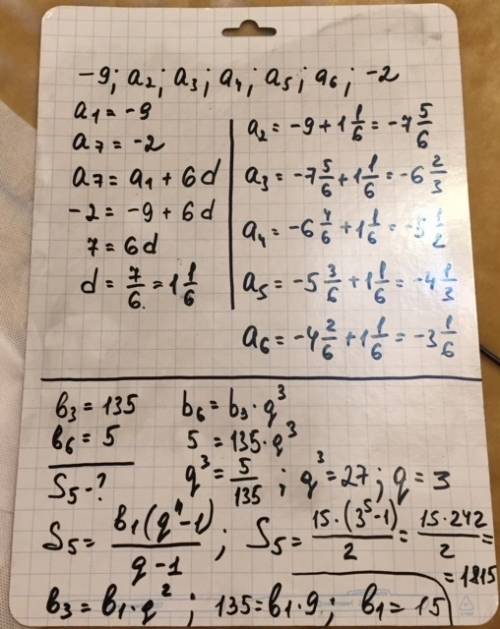 -9; a₂; a₃; a₄; a₅; a₆; -2
a₁ = -9
a₇ = -2
a₇ = a₁ + 6d
-2 = -9 + 6d
7 = 6d
d = 7/6 = 1 1/6
a₂ = -9 + 1 1/6 = -7 5/6
a₃ = -7 5/6 + 1 1/6 = -6 2/3
a₄ = -6 4/6 + 1 1/6 = -5 1/2
a₅ = -5 3/6 + 1 1/6 = -4 1/3
a₆ = -4 2/6 + 1 1/6 = -3 1/6
в₃ = 135
в₆ = 5
S₅ - ?
b₆ = b₃ · q³
5 = 135 · q³
q³ = 5/135 ; q³ = 27 ; q = 3
S₅ = в₁(q⁴-1)/(q-1) ; S₅ = 15·(3⁵-1)/2 = 15·242/2 =
= 1815
в₃ = в₁ · q² ; 135 = в₁ · 9 ; в₁ = 15